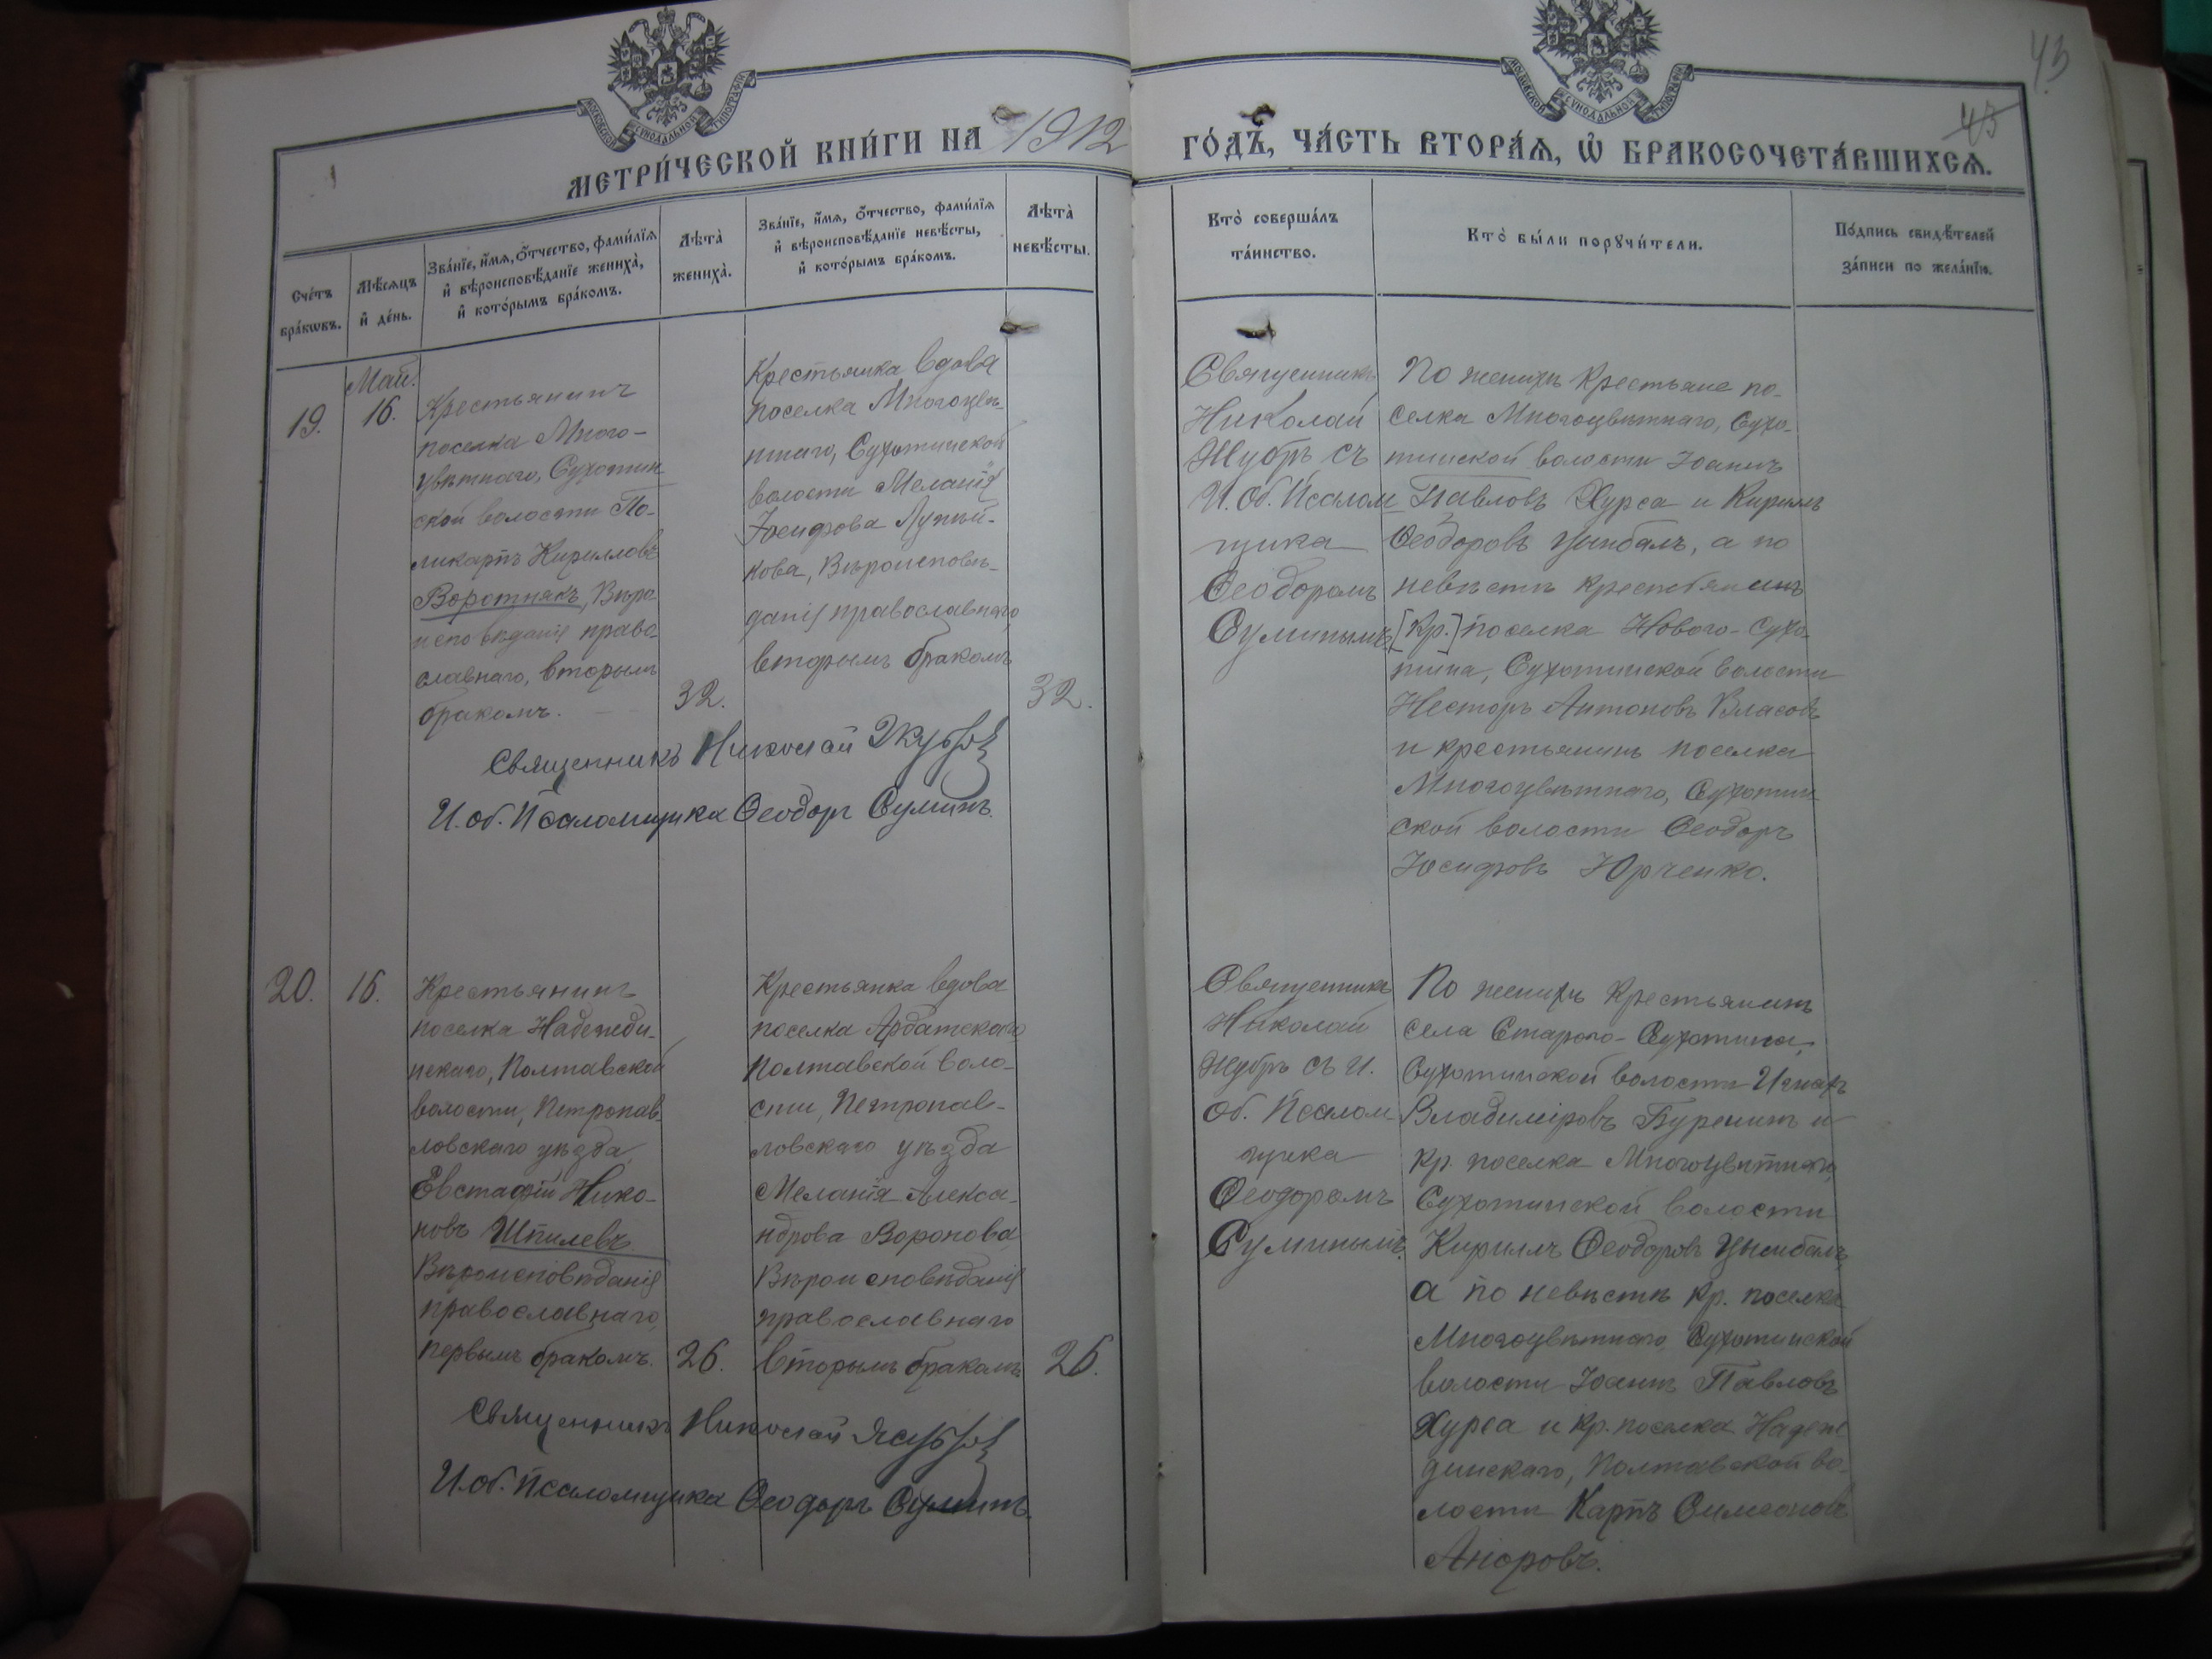 МОСКОВСКОЙ СѴНОДАЛЬНОЙ ТИПОГРАФІИ
МОСКОВСКОЙ СѴНОДАЛЬНОЙ ТИПОГРАФІИ
43
43
МЕТРИ́ЧЕСКОЙ КНИ́ГИ НА 1912 ГО́ДЪ, ЧА́СТЬ ВТОРА́Я, Ѡ҆ БРАКОСОЧЕТА́ВШИХСѦ.
Сче́тъ
бра́кѡвъ.
Мѣ́сяцъ
и҆ де́нь.
Зва́нїе, и҆́мѧ, ѻ҆́тчество, фами́лїѧ
и҆ вѣроисповѣ́данїе жениха̀,
и҆ кото́рымъ бра́комъ.
Лѣ́та̀
жениха̀.
Зва́нїе, и҆́мѧ, ѻ҆́тчество, фами́лїѧ
и҆ вѣроисповѣ́данїе невѣ́сты,
и҆ кото́рымъ бра́комъ.
Лѣ́та̀
невѣ́сты.
Кто̀ соверша́лъ
та́инство.
Кто̀ бы́ли порꙋчи́тели.
По́дпись свидѣ́телей
за́писи по жела́нїю.
19.
Май.
16.
Крестьянинъ
поселка Много-
цвѣтнаго, Сухотин
ской волости По-
ликарпъ Кирилловъ
Воротнякъ, Вѣро
исповѣданія право
славнаго, вторымъ
бракомъ.
32.
Крестьянка вдова
поселка Многоцвѣ-
тнаго, Сухотинской
волости Меланія
Іосифова
Вѣроисповѣ-
данія православнаго,
вторымъ бракомъ
32.
Священникъ Николай Жубръ
И. об. Псаломщика Ѳеодоръ Суминъ.
Священникъ
Николай
Жубръ съ
И. Об. Псалом
щика
Ѳеодоромъ
Суминымъ
По женихѣ крестьяне по-
селка Многоцвѣтнаго, Сухо-
тинской волости Іоаннъ
Павловъ Хурса и Кириллъ
Ѳеодоровъ Цымбалъ, а по
невѣстѣ крестьянинъ
[кр.] поселка Нового-Сухо-
тина, Сухотинской волости
Несторъ Антоновъ Власовъ
и крестьянинъ поселка
Многоцвѣтнаго, Сухотин-
ской волости Ѳеодоръ
Іосифовъ Юрченко.
20.
16.
Крестьянинъ
поселка Надежди-
нскаго, Полтавской
волости, Петропав-
ловскаго уѣзда,
Евстафій Нико-
новъ Шпилевъ
Вѣроисповѣданія
православнаго,
первымъ бракомъ.
26.
Крестьянка вдова
поселка Ардатскаго,
Полтавской воло-
сти, Петропав-
ловскаго уѣзда
Меланія Алекса-
ндрова Воронова
Вѣроисповѣданія
православнаго
вторымъ бракомъ
26.
Священникъ Николай Жубръ
И. об. Псаломщика Ѳеодоръ Суминъ.
Священникъ
Николай
Жубръ съ И.
Об. Псалом-
щика
Ѳеодоромъ
Суминымъ.
По женихѣ крестьянинъ
села Старого-Сухотина,
Сухотинской волости
Владиміровъ Буренинъ и
кр. поселка Многоцвѣтнаго,
Сухотинской волости
Кириллъ Ѳеодоровъ Цымбалъ,
а по невѣстѣ кр. поселка
Многоцвѣтнаго, Сухотинской
волости Іоаннъ Павловъ
Хурса и кр. поселка Надеж
динскаго, Полтавской во-
лости Карпъ Симеоновъ